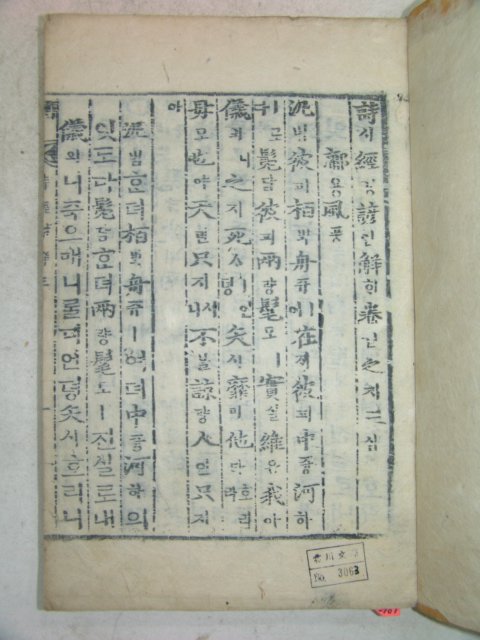 詩시經경諺언解ᄒᆡ卷권之지三삼
鄘용風풍
汎범彼피栢ᄇᆡᆨ舟쥬ㅣ여在ᄌᆡ彼피中듕河하
ㅣ로다髧담彼피兩량髦모ㅣ實실維유我아
儀의니之지死ᄉᆞㅣ언뎡矢시靡미他타호리라
母모也야天텬只지시니不블諒량人인只지
아
汎범ᄒᆞᆫ뎌栢ᄇᆡᆨ舟쥬ㅣ여뎌中듕河하의
잇도다髧담ᄒᆞᆫ뎌兩량髦모ㅣ진실로내
儀의니죽으매니롤디언뎡矢시ᄒᆞ리니
No. 3063